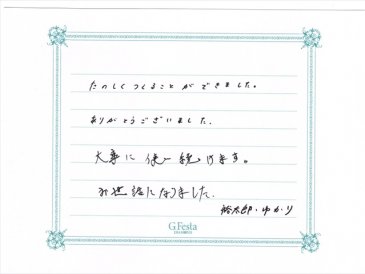 たのしくつくることができました。
ありがとうございました.
大事に使い続けます。
お世話になりました.
裕太郎・ゆかり
G.Festa